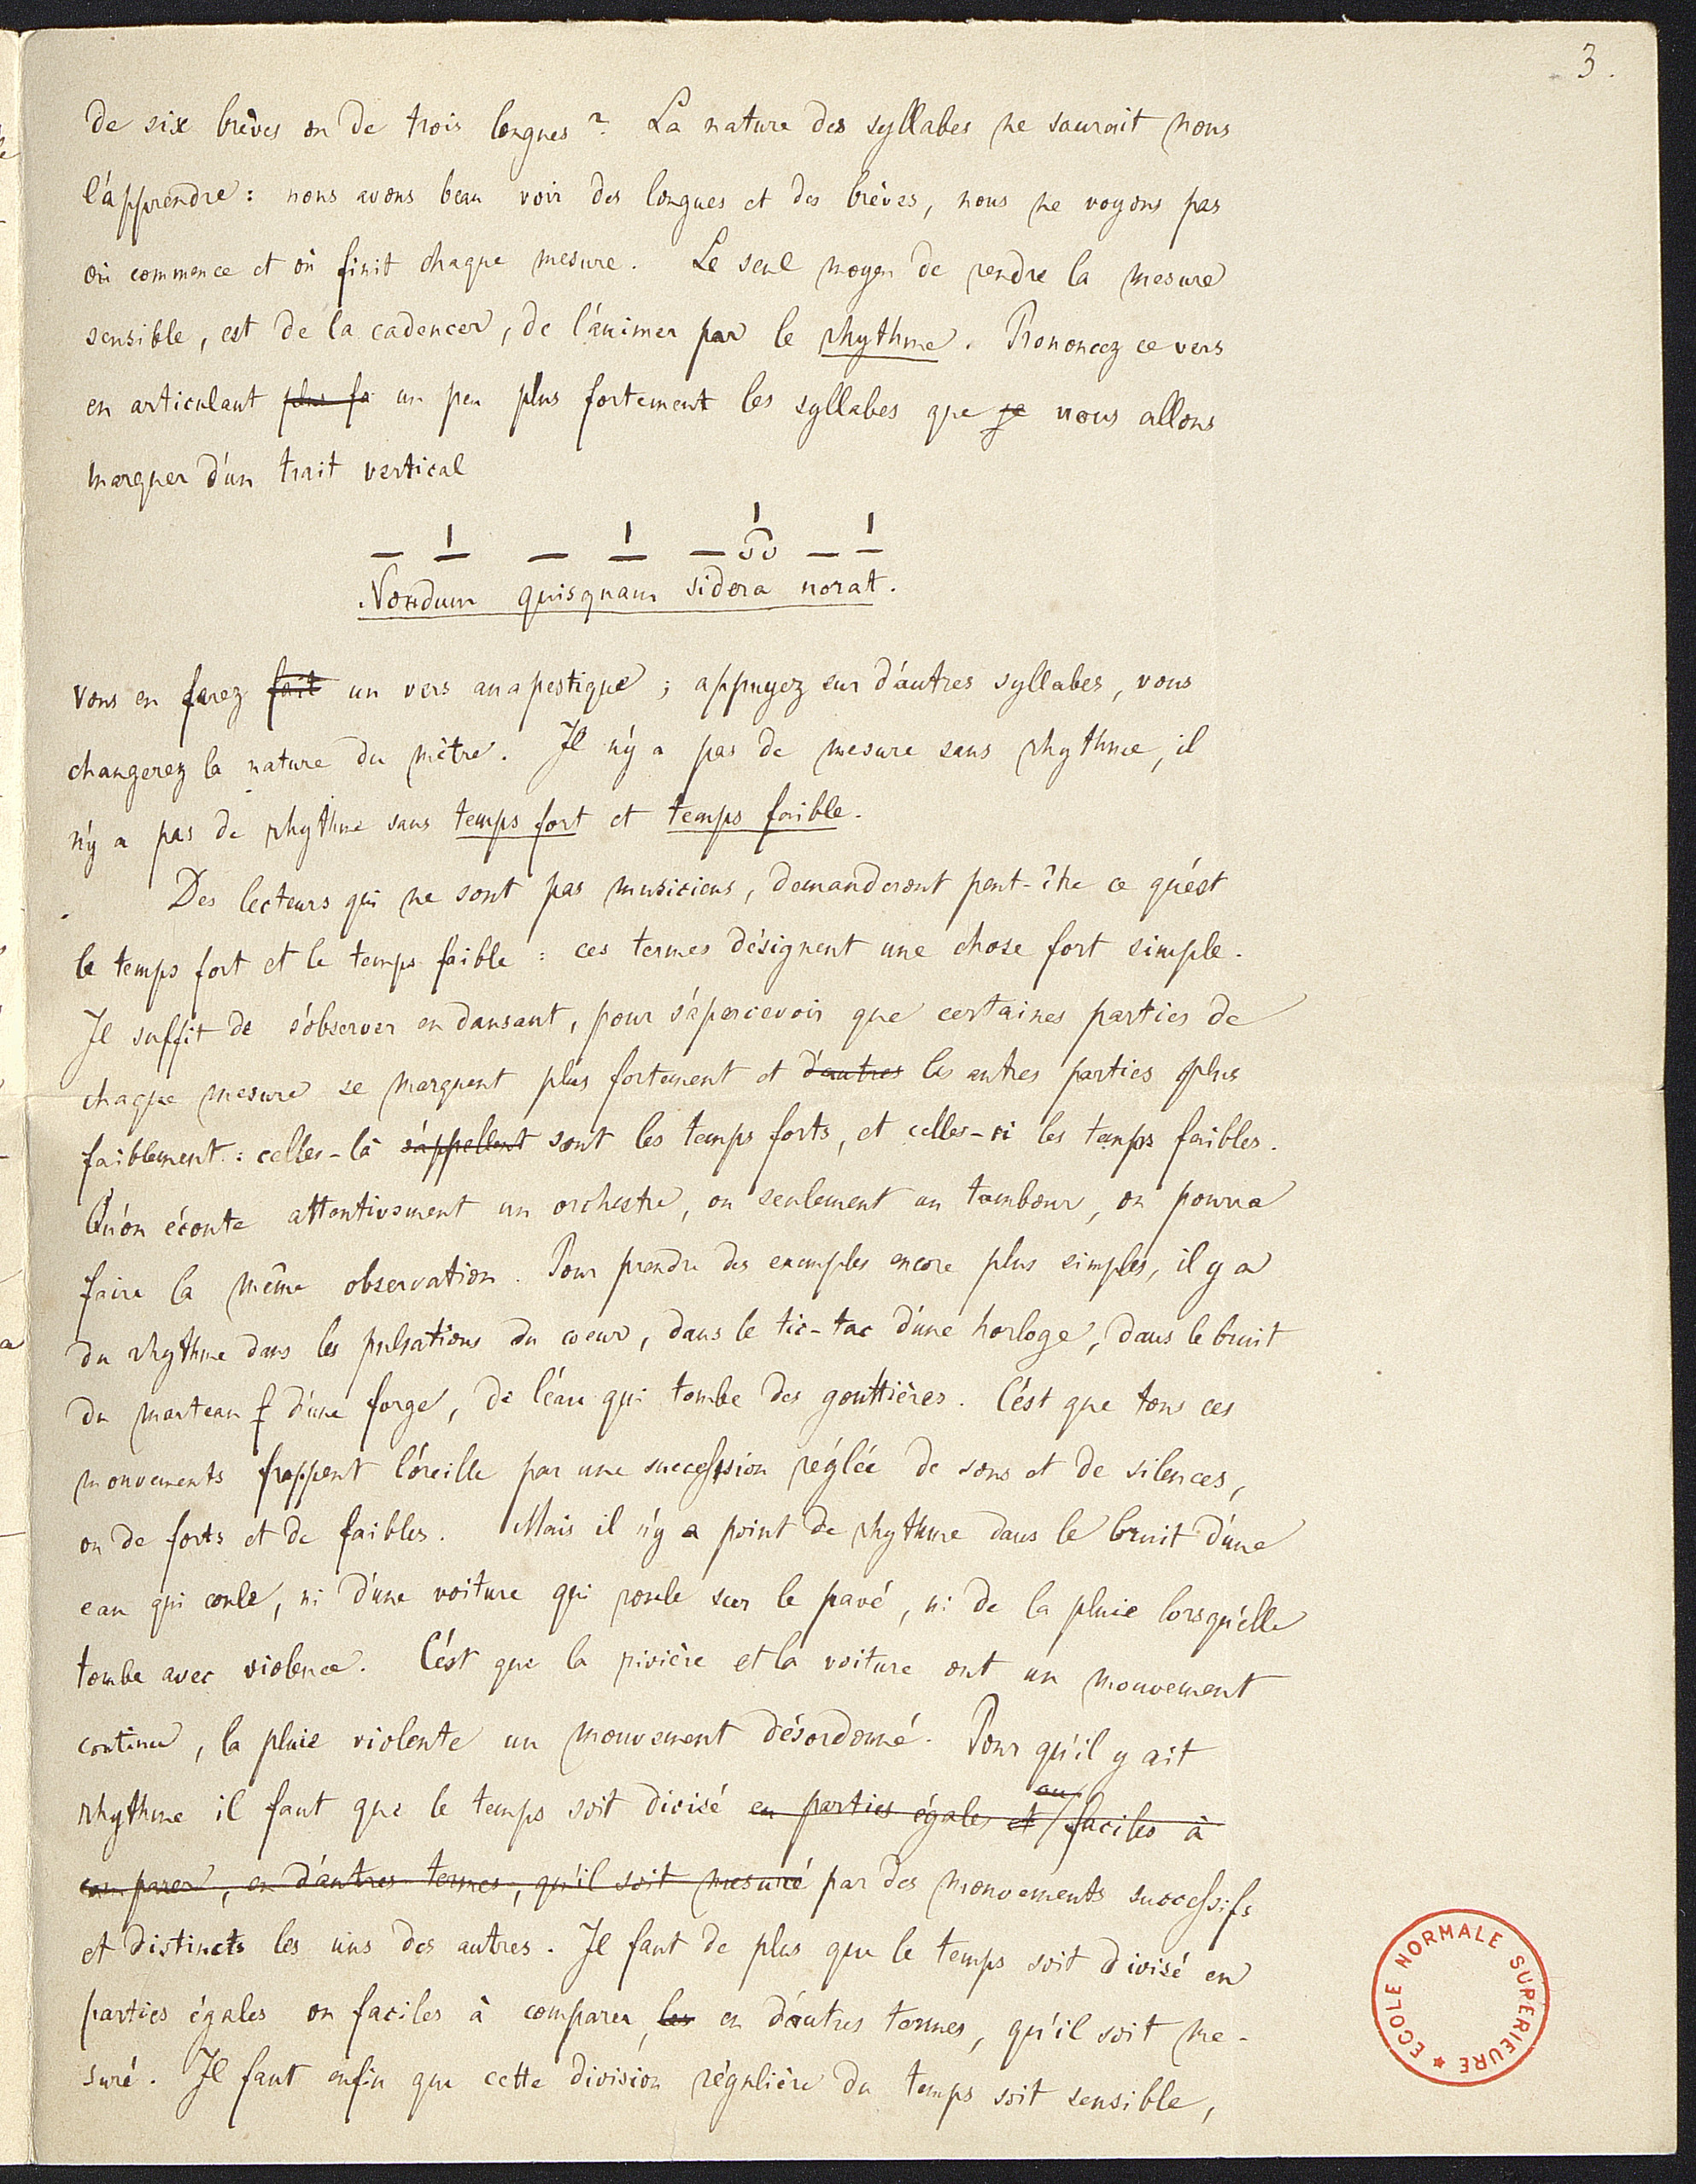 3.
de six brèves ou de trois longues ? La nature des syllabes ne saurait nous
l'apprendre : nous avons beau voir des longues et des brèves, nous ne voyons pas
où commence et où finit chaque mesure. Le seul moyen de rendre la mesure
sensible, est de la cadencer, de l'animer par le rhythme. Prononcez ce vers
en articulant plus fo un peu plus fortement les syllabes que je nous allons
marquer d'un trait vertical
Nondum quisquam sidera norat.
vous en ferez fait un vers anapestique ; appuyez sur d'autres syllabes, vous
changerez la nature du mètre. Il n'y a pas de mesure sans rhythme, il
n'y a pas de rhythme sans temps fort et temps faible.
Des lecteurs qui ne sont pas musiciens, demanderont peut-être ce qu'est
le temps fort et le temps faible : ces termes désignent une chose fort simple.
Il suffit de s'observer en dansant, pour s'apercevoir que certaines parties de
chaque mesure se marquent plus fortement et d'autres les autres parties plus
faiblement : celles-là s'appellent sont les temps forts, et celles-ci les temps faibles.
Qu'on écoute attentivement un orchestre, ou seulement un tambour, on pourra
faire la même observation. Pour prendre des exemples encore plus simples, il y a
du rhythme dans les pulsations du coeur, dans le tic-tac d'une horloge, dans le bruit
du marteau f d'une forge, de l'eau qui tombe des gouttières. C'est que tous ces
mouvements frappent l'oreille par une succession réglée de sons et de silences,
ou de forts et de faibles. Mais il n'y a point de rhythme dans le bruit d'une
eau qui coule, ni d'une voiture qui roule sur le pavé, ni de la pluie lorsqu'elle
tombe avec violence. C'est que la rivière et la voiture ont un mouvement
continu, la pluie violente un mouvement désordonné. Pour qu'il y ait
ou
rhythme il faut que le temps soit divisé en parties égales et faciles à
comparer, en d'autres termes, qu'il soit mesuré par des mouvements successifs
et distincts les uns des autres. Il faut de plus que le temps soit divisé en
parties égales ou faciles à comparer, les en d'autres termes, qu'il soit me-
suré. Il faut enfin que cette division régulière du temps soit sensible,
ECOLE NORMALE SUPERIEURE